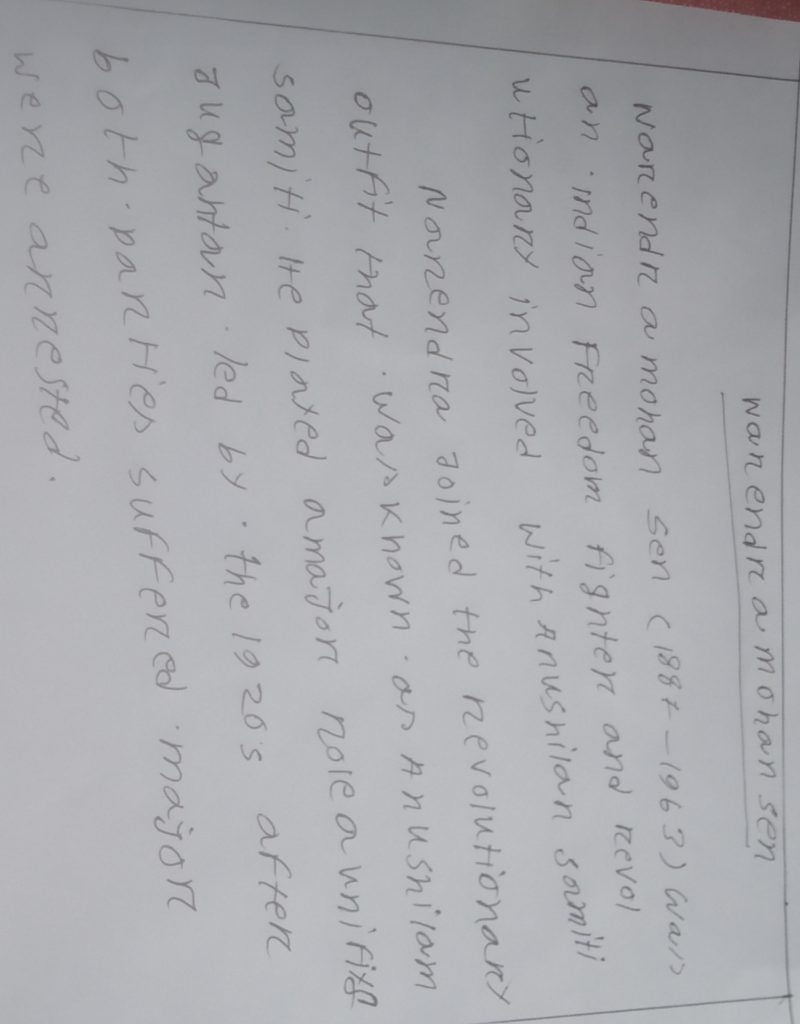 Narendra mohan sen
Narendra mohan sen (1887-1963) was
an indian freedom fighter and revol
utionary involved with Anushilan samiti
Narendra Joined the revolutionary
outfit that was known as Anushilam
samiti. He played a major role a unifixg
Jugantar. led by. the 1920's after
both. parties suffered. major
were arrested.